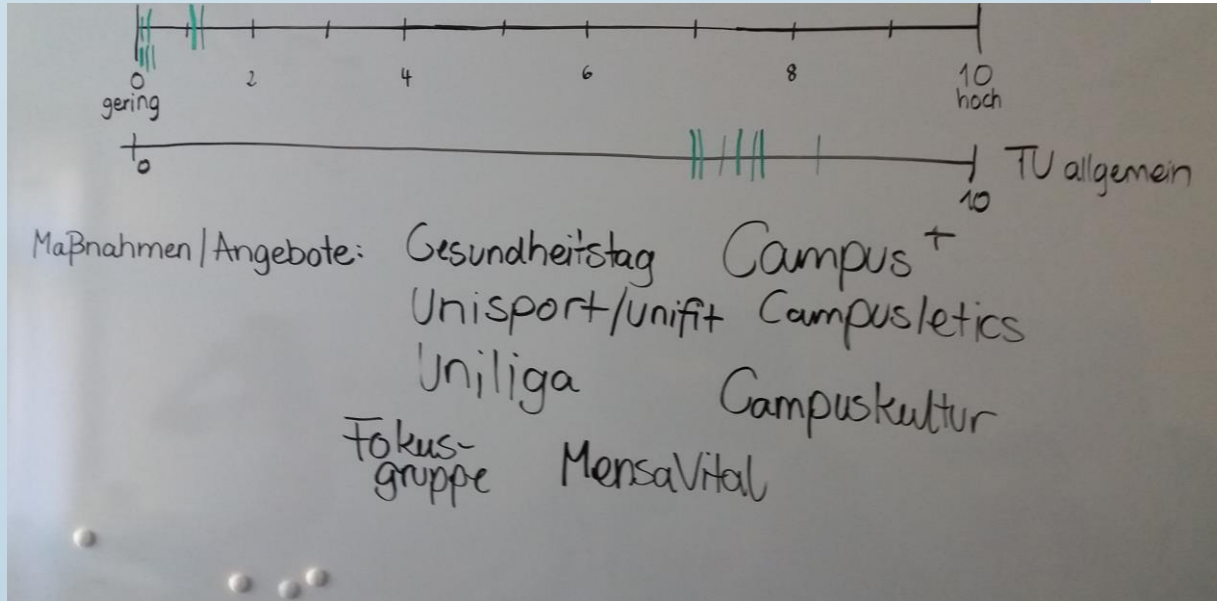 0 2 4 6 8 10
gering hoch
0 10 TU allgemein
Maßnahmen/Angebote: Gesundheitstag Campus+
Unisport/unifit Campusletics
Uniliga Campuskultur
Fokus-
gruppe MensaVital